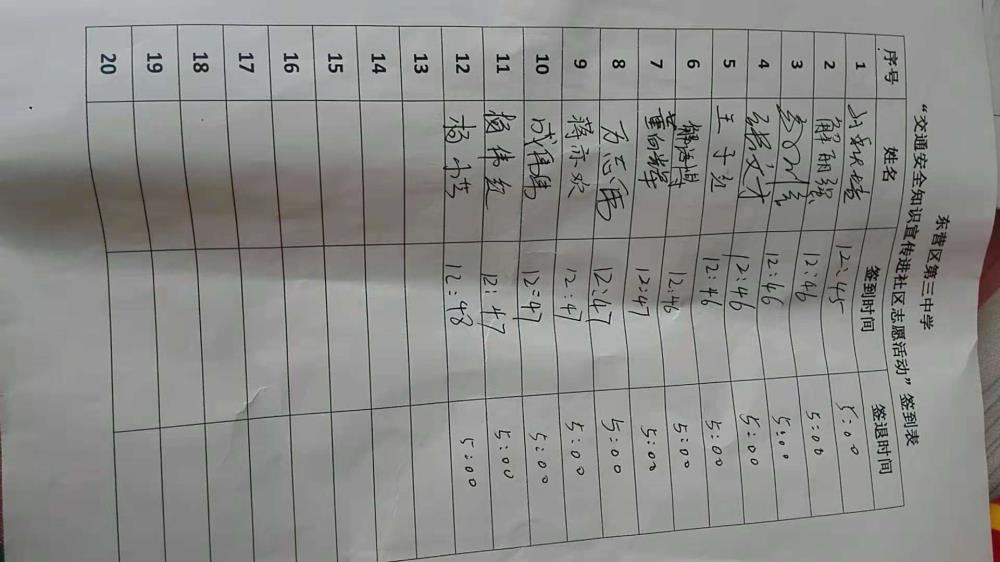 东营区第三中学
“交通安全知识宣传进社区志愿活动”签到表
序号 姓名 签到时间 签退时间
1 12:45 5:00
2 解丽强 12:46 5:00
3 12:46 5:00
4 张文才 12:46 5:00
5 王子 12:46 5:00
6 解海博 12:46 5:00
7 董向辉 12:47 5:00
8 志 12:47 5:00
9 蒋亦欢 12:47 5:00
10 成伟 12:47 5:00
11 杨伟 12:47 5:00
12 杨 12:48 5:00
13
14
15
16
17
18
19
20